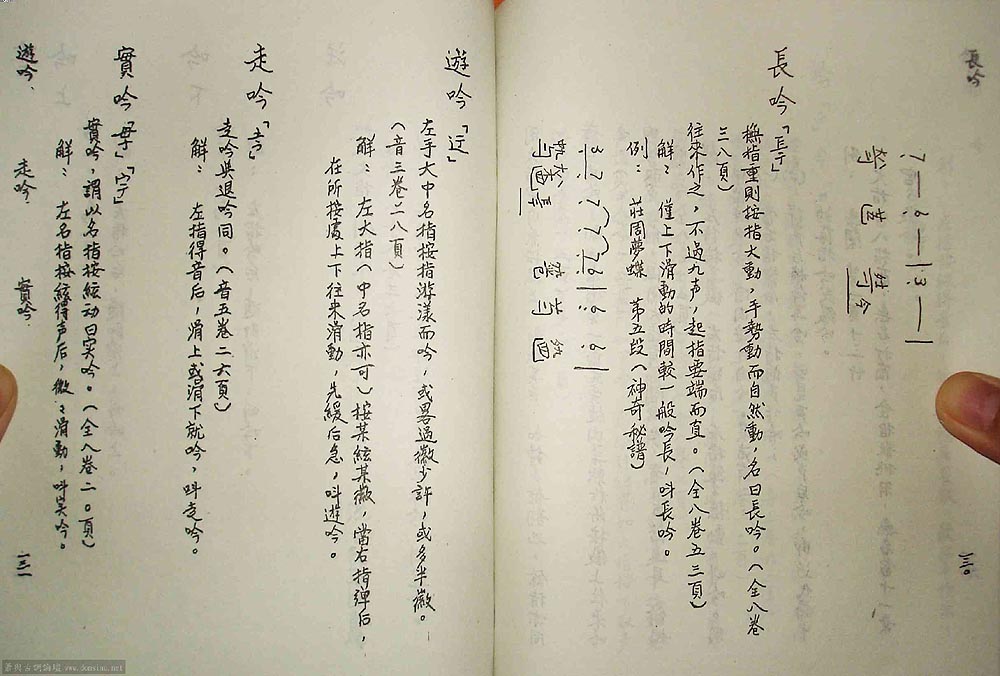 長吟
三〇
長吟「⿱」
撫指重則按指大動，手勢動而自然動，名曰長吟。（全八卷
三八頁）
往來作之，不過九声，起指要端而直。（全八卷五三頁）
解：僅上下滑動的時間較一般吟長，叫長吟。
例：莊周夢蝶 第五段（神奇秘譜）
遊吟「辶」
左手大中名指按指游漾而吟，或畧過徽少許，或多半徽。
（音三卷二八頁）
解：左大指（中名指亦可）按某絃某徽，當右指彈后，
在所按處上下往來滑動，先緩后急，叫遊吟。
走吟「」
走吟與退吟同。（音五卷二六頁）
解：左指得音后，滑上或滑下就吟，叫走吟。
實吟「」「」
實吟，謂以名指按絃动曰实吟。（全八卷二〇頁）
解：左名指按絃得声后，微微滑動，叫实吟。
遊吟、
走吟、
實吟、
三一
蕭與古調論壇 www.domsiau.net